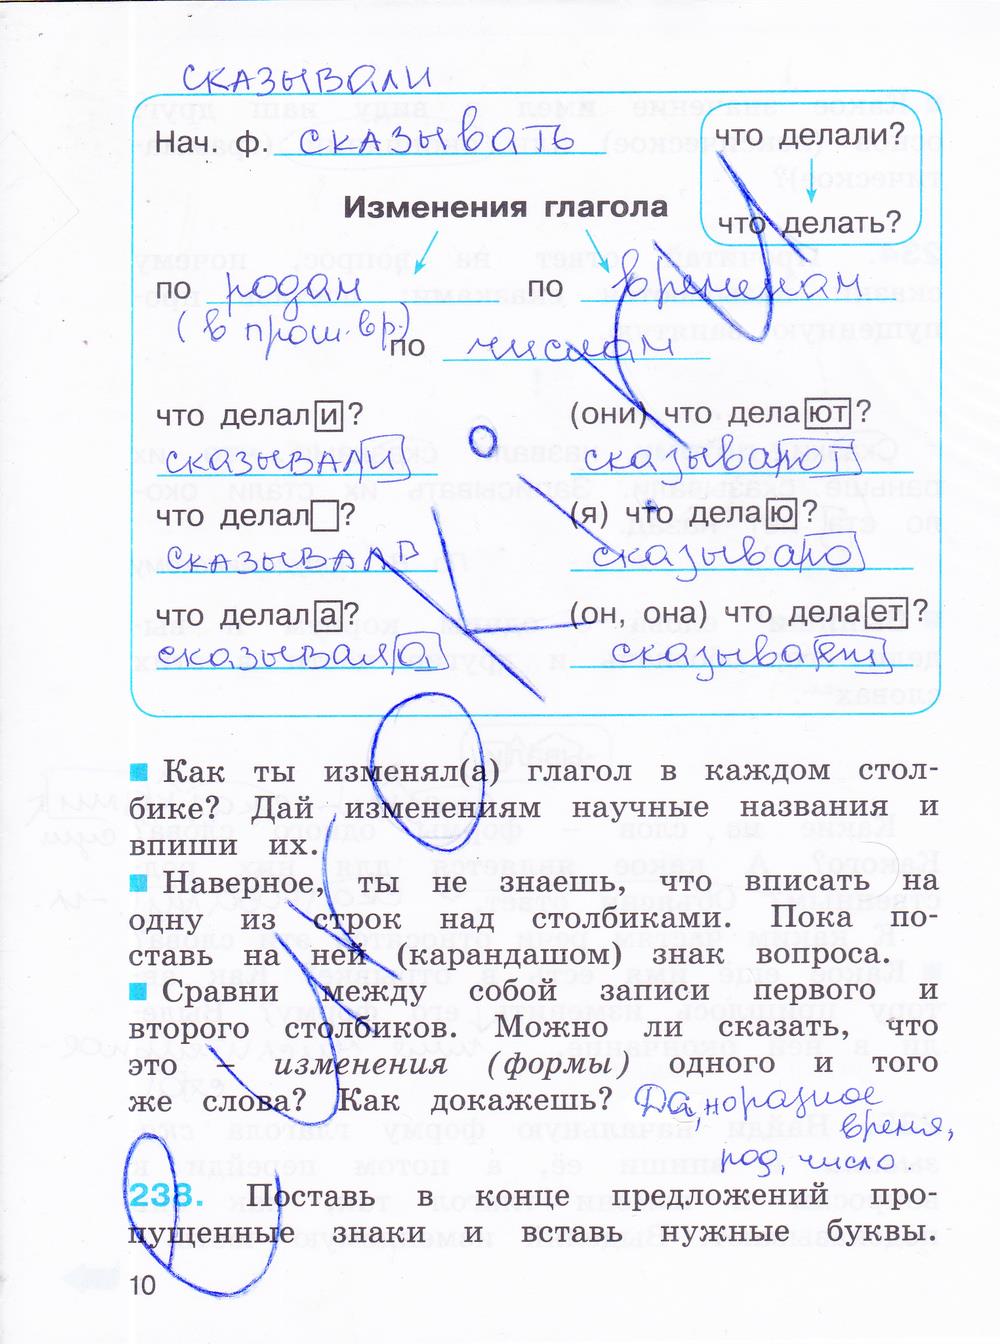 сказывали
Нач. ф. сказывать
что делали?
что делать?
Изменения глагола
по родам по временам
(в прош. вр.)
по числам
что делали? (они) что делают?
сказывали сказывают
что делал? (я) что делаю?
сказывал сказываю
что делала? (он, она) что делает?
сказывала сказывает
Как ты изменял(а) глагол в каждом стол-
бике? Дай изменениям научные названия и
впиши их.
Наверное, ты не знаешь, что вписать на
одну из строк над столбиками. Пока по-
ставь на ней (карандашом) знак вопроса.
Сравни между собой записи первого и
второго столбиков. Можно ли сказать, что
это – изменения (формы) одного и того
же слова? Как докажешь? Да, но разное
время,
род, число
238. Поставь в конце предложений про-
пущенные знаки и вставь нужные буквы.
10